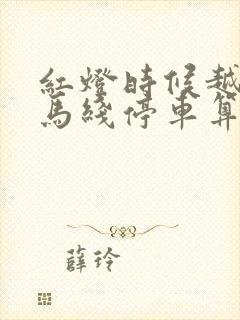 红燈時候越
馬綫停車算
薛玲